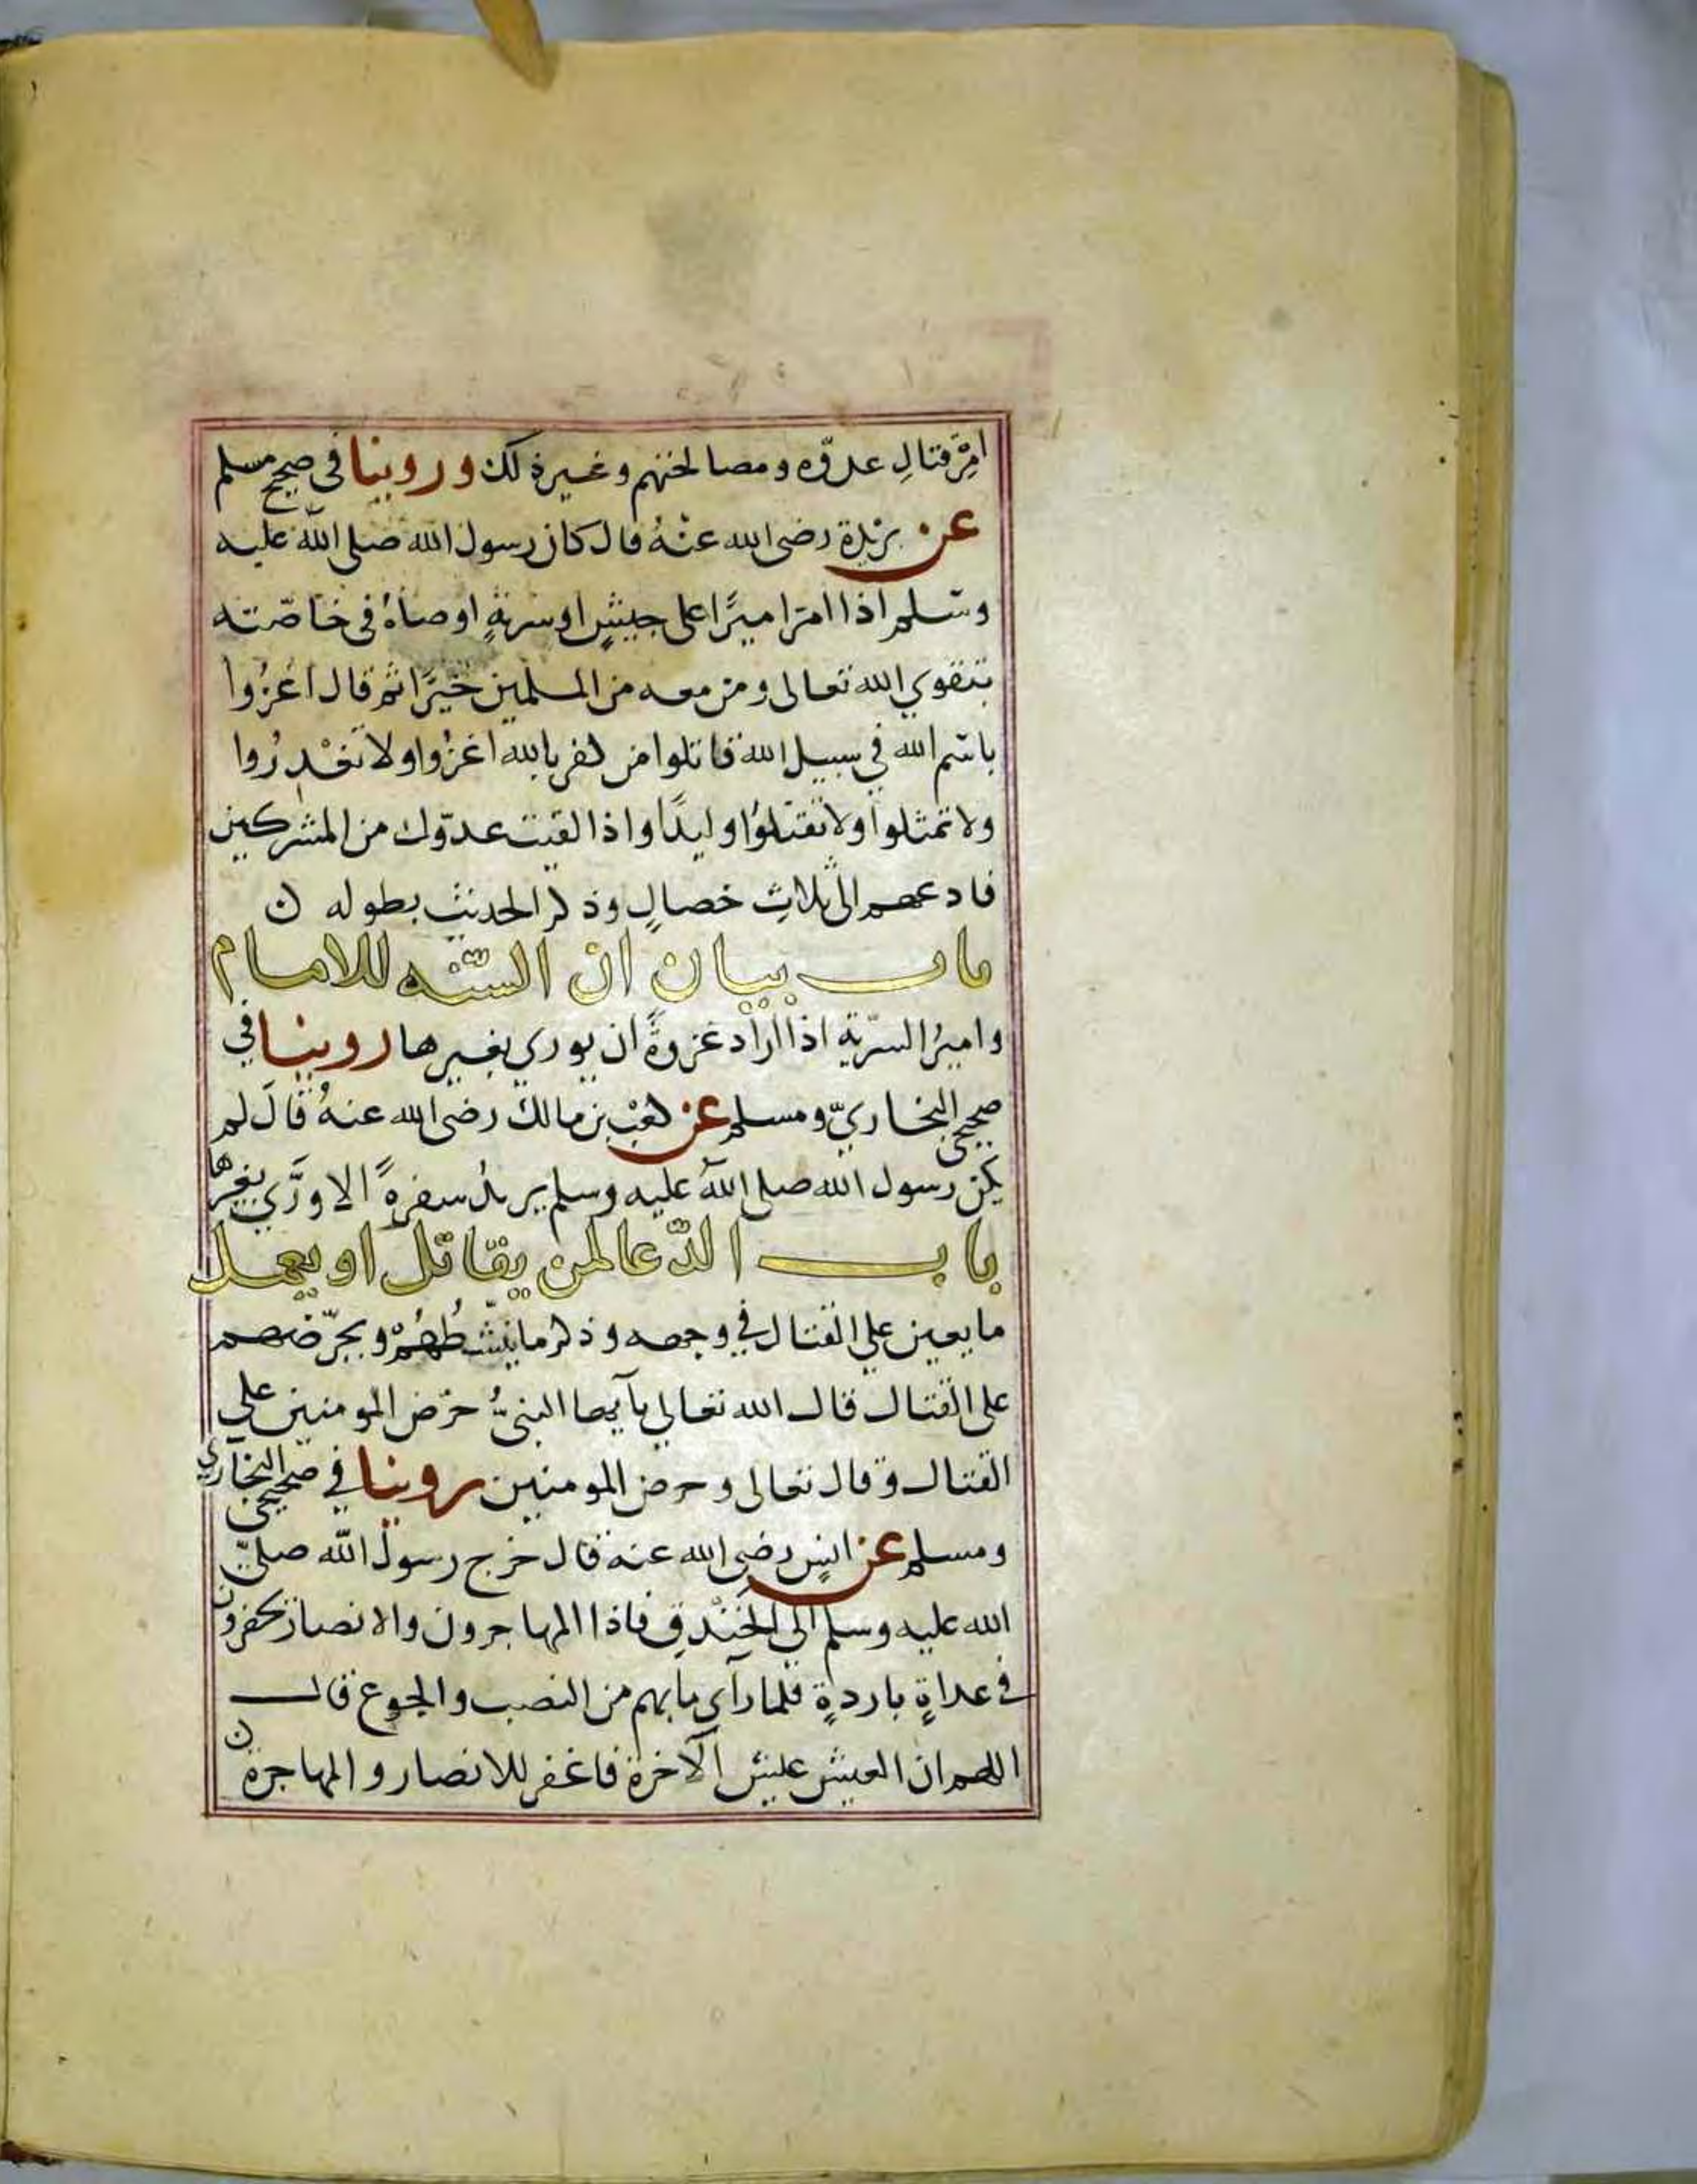 امر قتال عدوّه ومصالحتهم وغير ذلك وروينا في صحيح مسلم
عن بريدة رضي الله عنهُ قال كان رسول الله صلى الله عليه
وسلم اذا امر اميرًا على جيشٍ او سريةٍ اوصاهُ في خاصّته
بتقوي الله تعالى ومن معه من المسلمين خيرًا ثم قال اغزُوا
باسْم الله في سبيل الله قاتلوا من كفر بالله اغزُوا ولا تغْدرُوا
ولا تمثلوا ولا تقتلوُا وليدًا واذا لقيت عدوّك من المشركين
فادعهم الى ثلاثِ خصالٍ وذكر الحديث بطوله ن
باب بيان ان السّنه للامام
واميرُ السريّة اذا اراد غزوةً ان يوري بغيرها روينا في
صحيحي البخاريّ ومسلم عن كعْب بن مالك رضي الله عنهُ قالَ لم
يكن رسول الله صلى الله عليه وسلم يريدُ سفرةً الا ورَّي بغيرها
باب الدّعا لمن يقاتل او يعمل
ما يعين علي القتال في وجهه وذكر ما ينشّطُهُمْ ويحرّضهم
على القتال قال الله تعالي يآيها النبيُّ حرّض المومنين علي
القتال وقال تعالى وحرض المومنين روينا في صحيحي البخاري
ومسلم عن انسٍ رضي الله عنه قال خرج رسول الله صلىّ
الله عليه وسلم الي الخنْدقِ فاذا المهاجرون والانصار يحفرون
في غداةٍ باردةٍ فلما رآي ما بهم من النصب والجوع قال
اللهم ان العيش عيش الآخرة فاغفر للانصار والمهاجرة ن